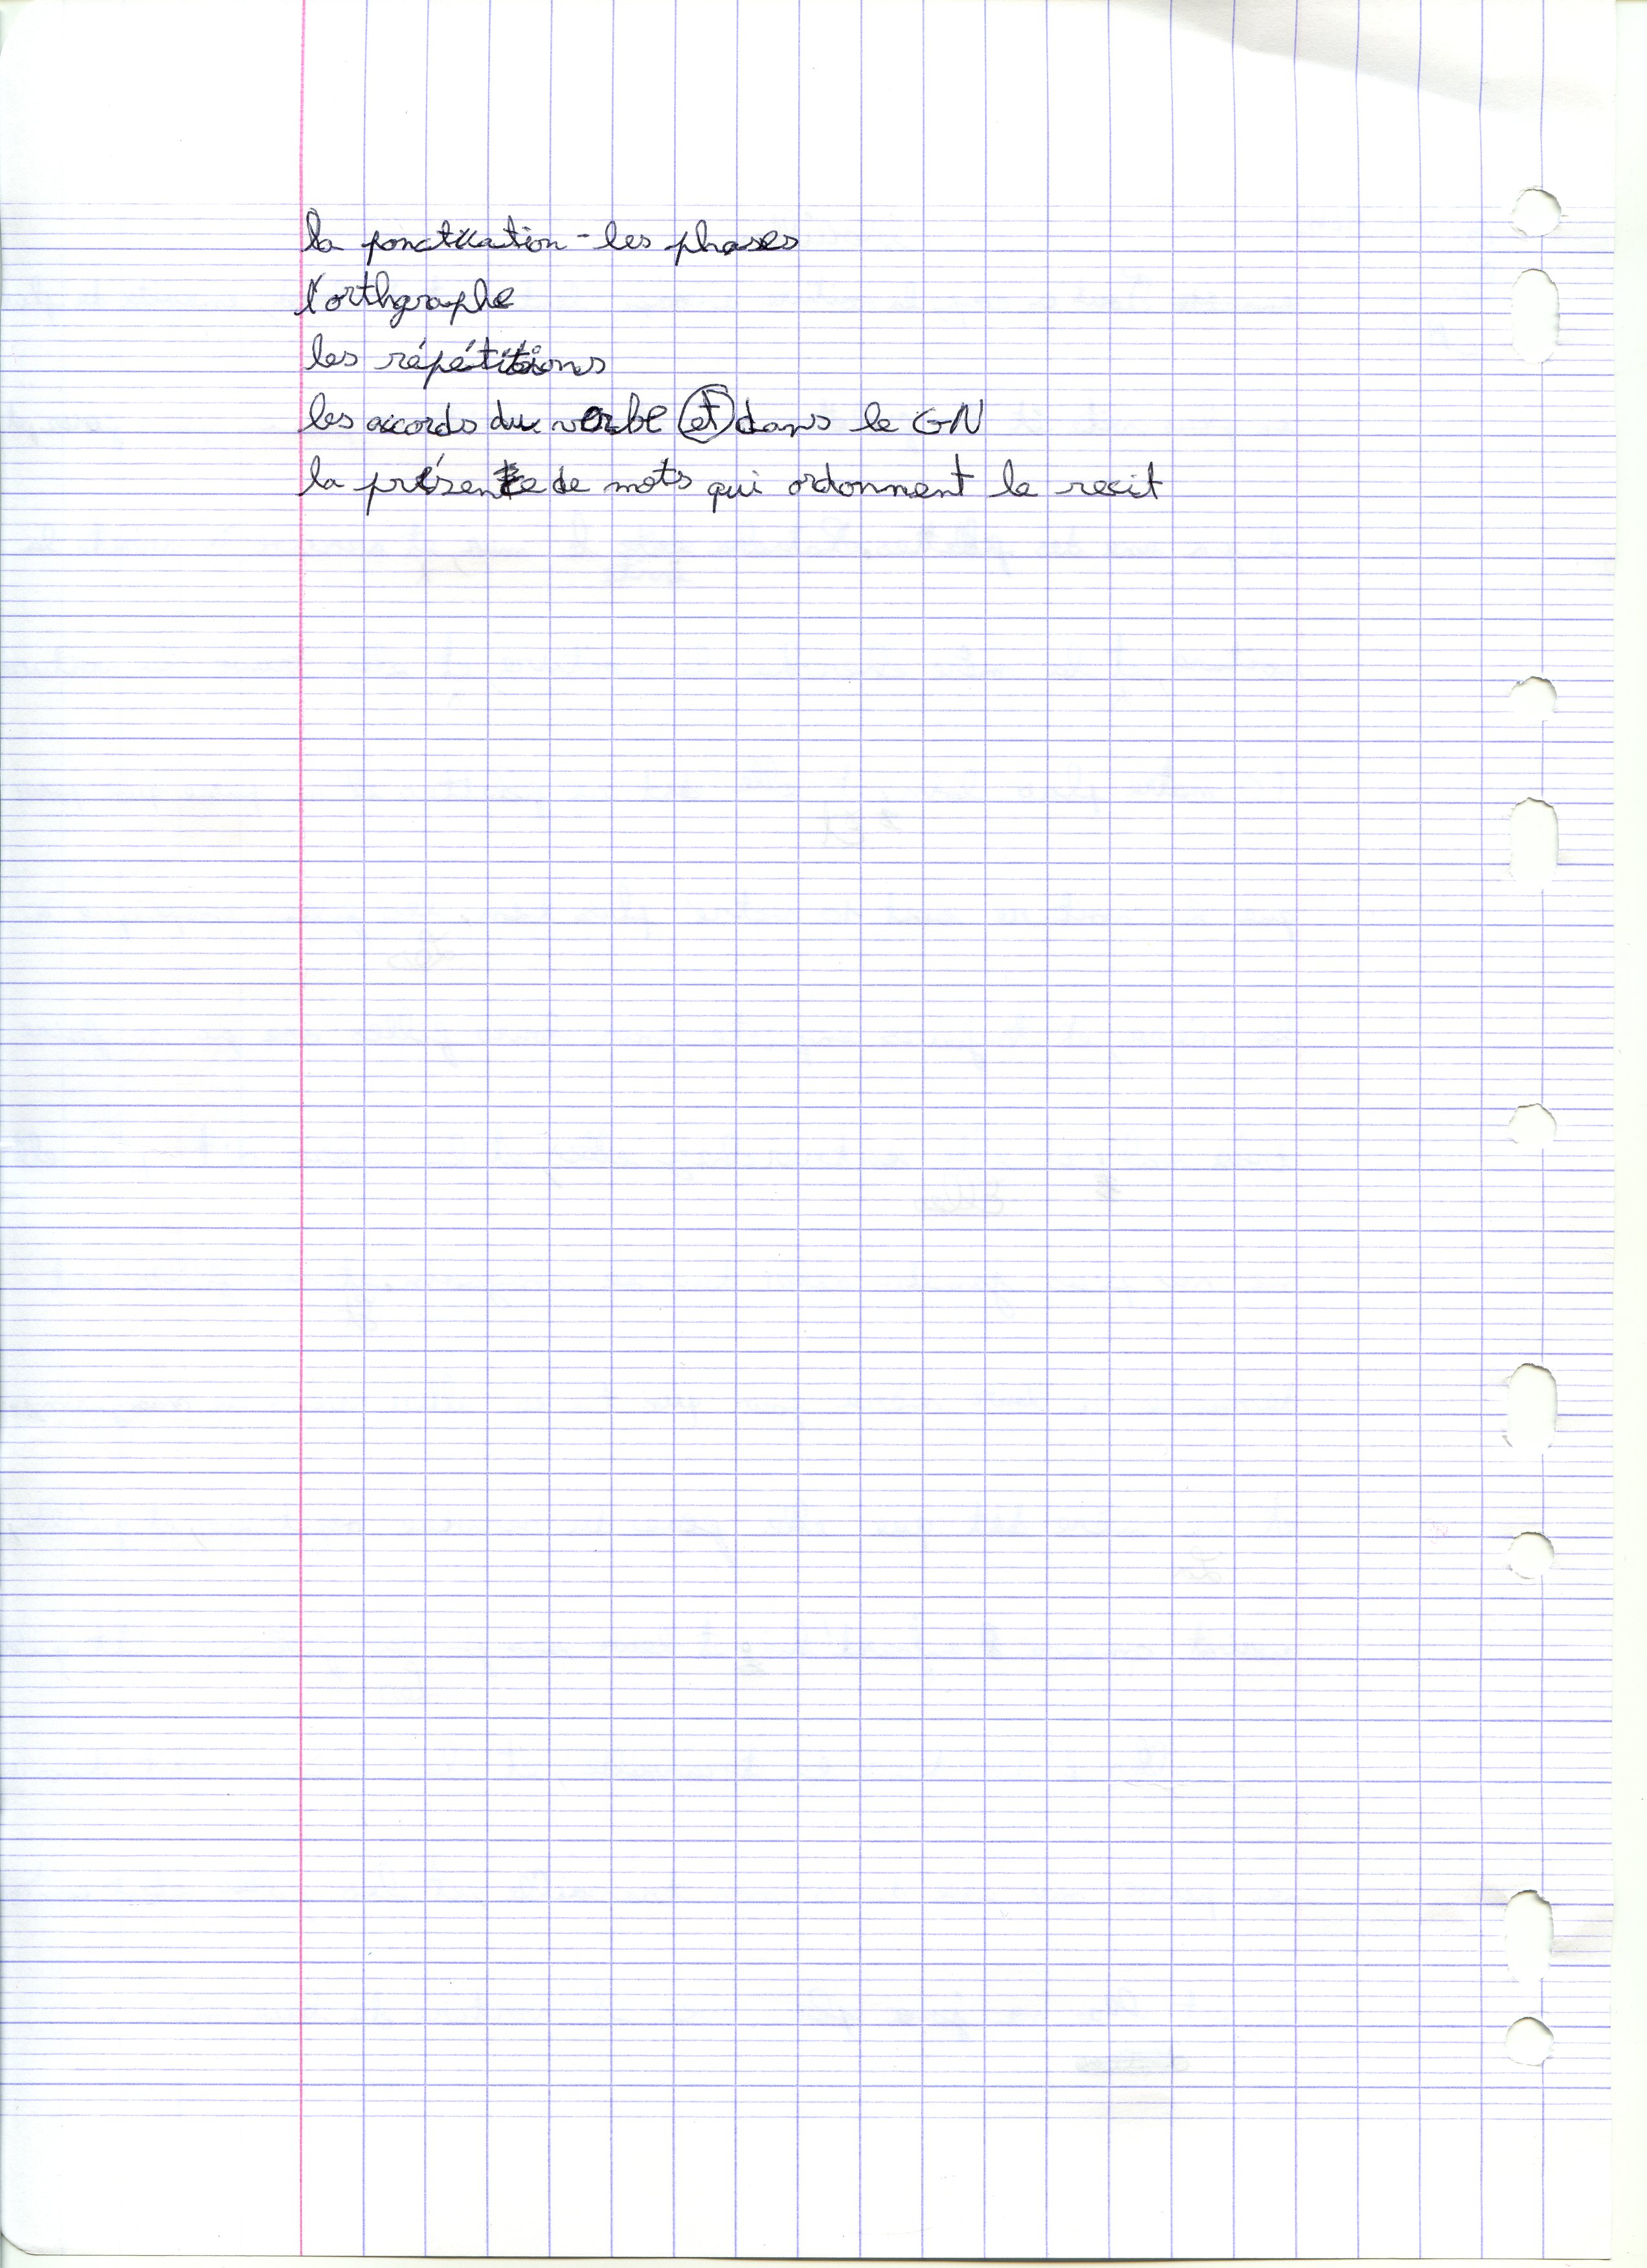 la ponctuation - les phases
l'orthgraphe
les répétitions
les accords du verbe et dans le GN
la présence de mots qui ordonnent le recit